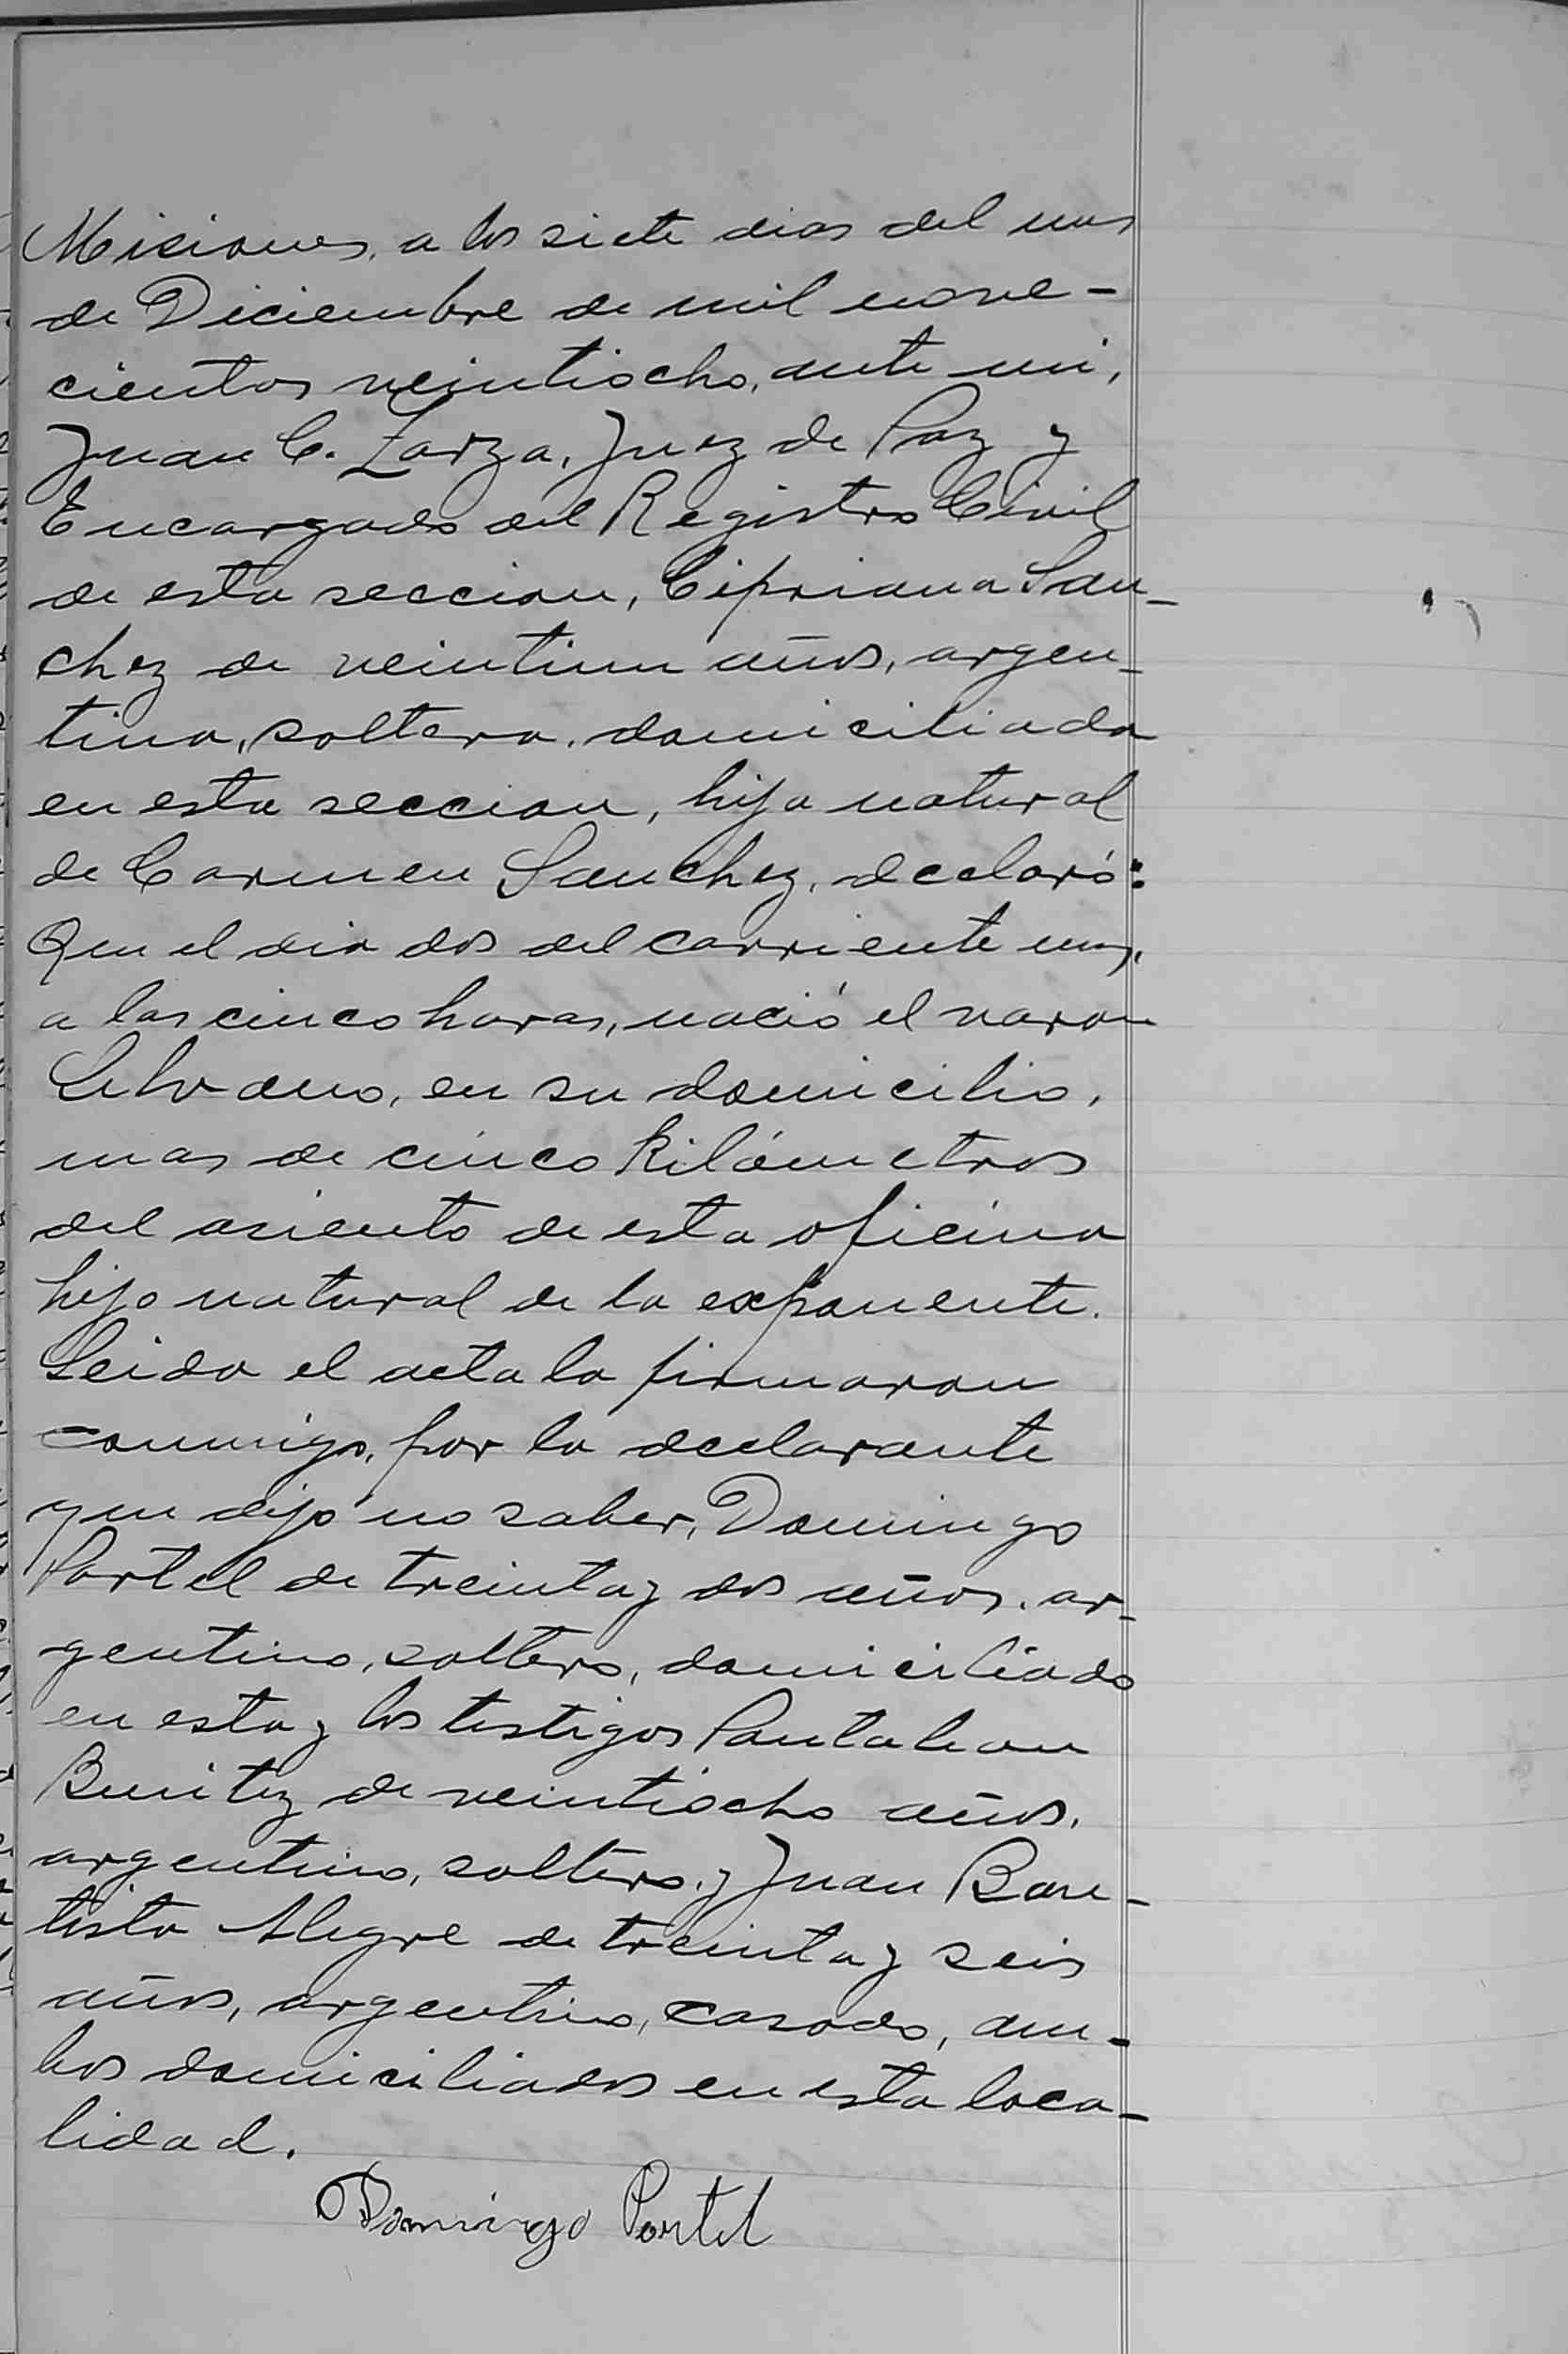 Misiones, a los siete dias del mes
de Diciembre de mil nove-
cientos veintiocho, ante mi,
Juan C. Zarza, Juez de Paz y
Encargado del Registro Civil
de esta seccion, Cipriana San-
chez de veintiun años, argen-
tina, soltera, domiciliada
en esta seccion, hija natural
de Carmen Sanchez, declaró:
Que el dia dos del corriente mes,
a las cinco horas, nació el varon
Silvano, en su domicilio,
mas de cinco kilómetros
del asiento de esta oficina
hijo natural de la exponente.
Leida el acta la firmaron
conmigo, por la declarante
que dijo no saber, Domingo
Portel de treinta y dos años, ar-
gentino, soltero, domiciliado
en esta y los testigos Pantaleon
Benitez de veintiocho años,
argentino, soltero, y Juan Bau-
tista Alegre de treinta y seis
años, argentino, casado, am-
bos domiciliados en esta loca-
lidad.
Domingo Portel